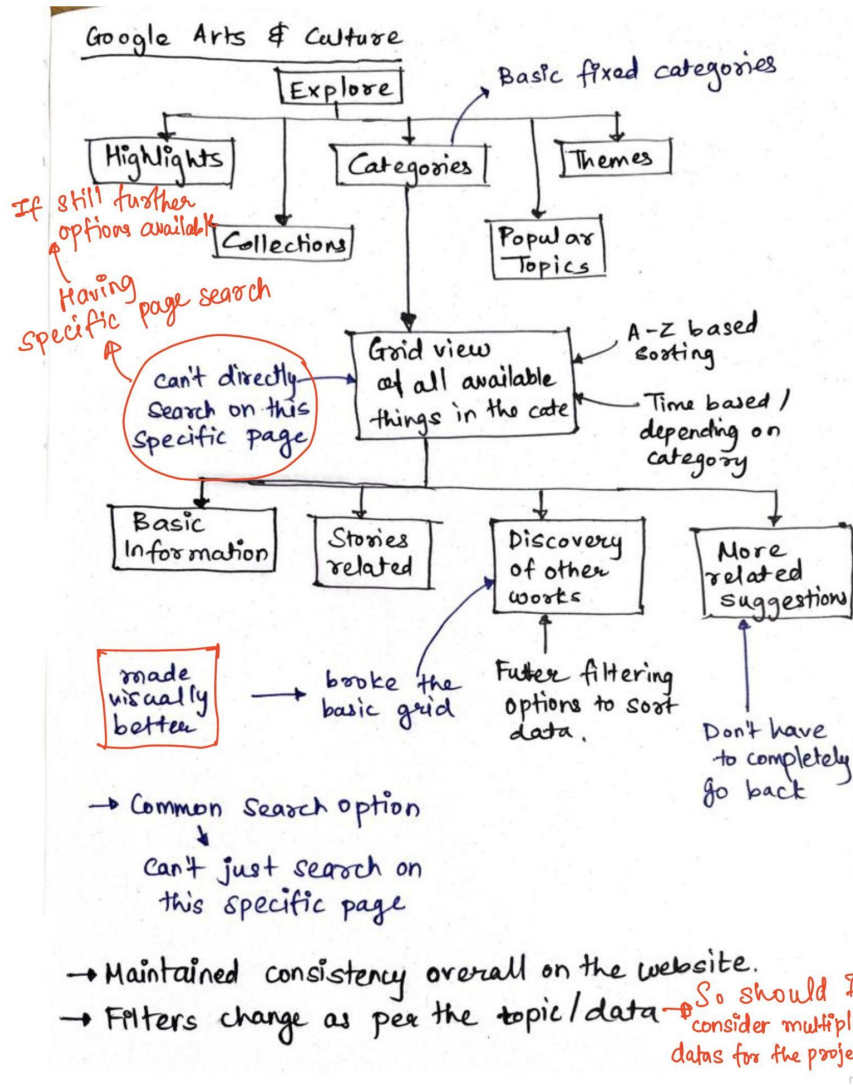 Google Arts & Culture
Explore
Basic fixed categories
Highlights
Categories
Themes
Collections
Popular
Topics
If still further
options available
Having
specific page search
can't directly
search on this
specific page
Grid view
of all available
things in the cate
A-Z based
sorting
Time based /
depending on
category
Basic
Information
Stories
related
Discovery
of other
works
More
related
suggestions
made
visually
better
broke the
basic grid
filtering
options to sort
data.
Don't have
to completely
go back
→ Common search option
can't just search on
this specific page
→ Maintained consistency overall on the website.
→ Filters change as per the topic/data
→ So should I
consider multipl
datas for the proje